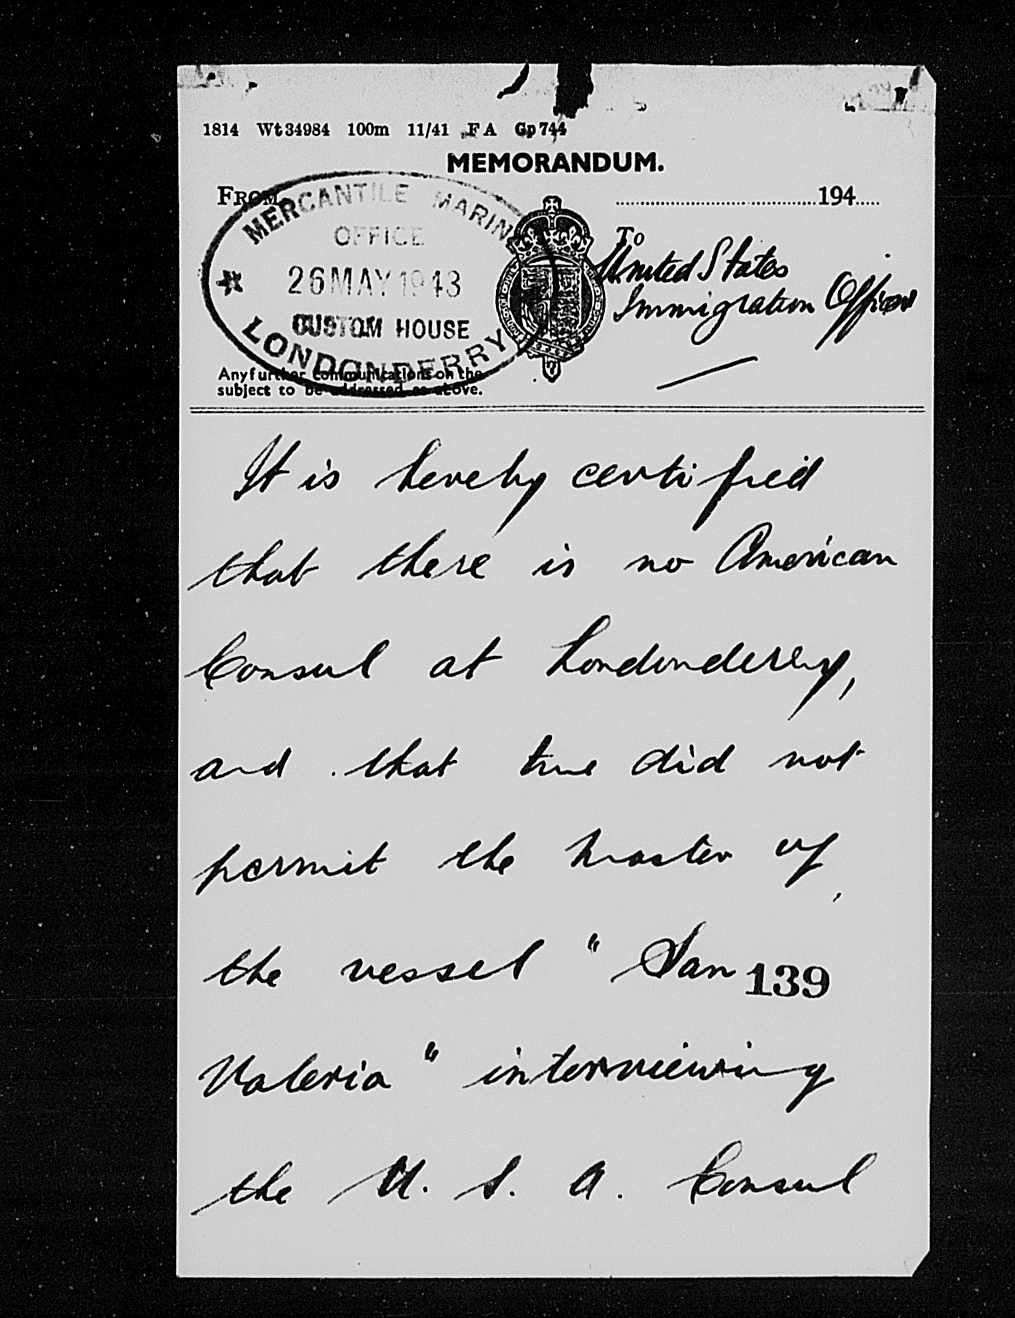 1814 Wt 34984 100m 11/41 F A Gp 744
MEMORANDUM.
FROM
194
MERCANTILE MARIN
OFFICE
26 MAY 1943
CUSTOM HOUSE
LONDONDERRY
To
United States
Immigration Officer
Any further communications on the
subject to be addressed as above.
It is hereby certified
that there is no American
Consul at Londonderry,
and that time did not
permit the master of
the vessel "San
139
Valeria" interviewing
the U. S. A. Consul